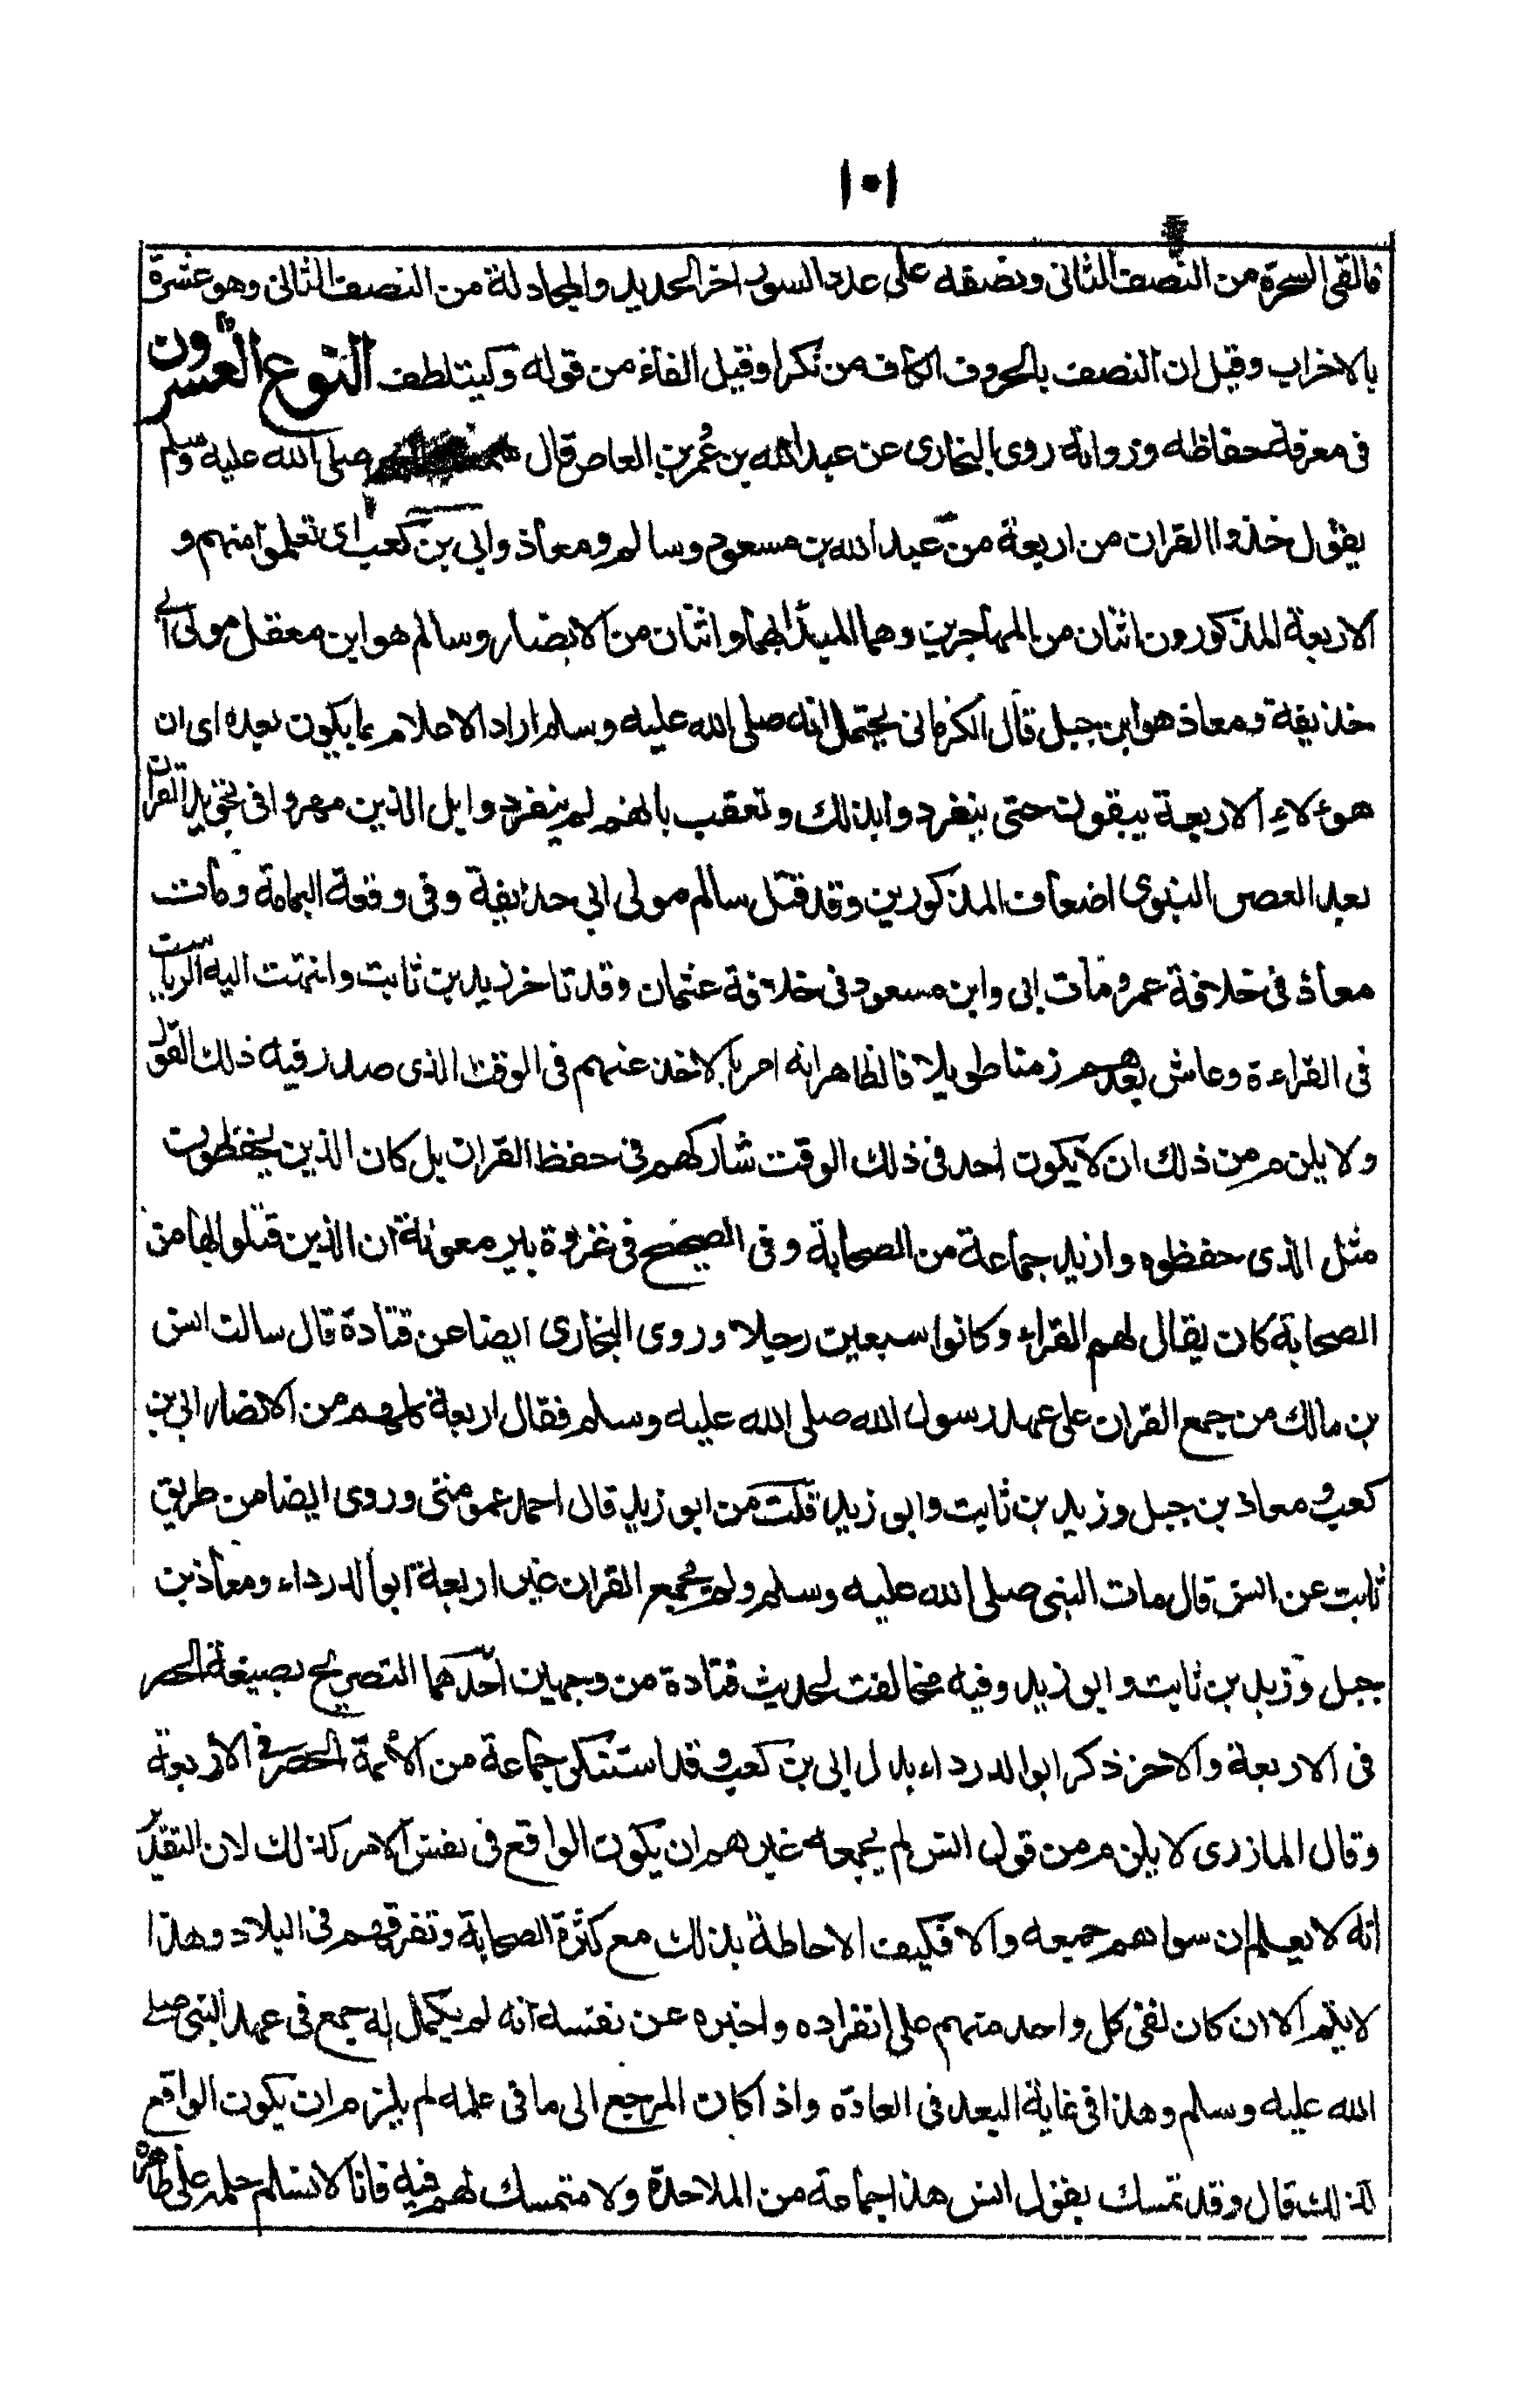 ١٠١
فالقى السحرة من النصف الثانى ونصفه على عدد السور اخر الحديد والمجادلة من النصف الثانى وهو عشرة
بالاخراب وقيل ان النصف بالحروف الكاف من نكرا وقيل الفاء من قوله وليتلطف النوع العشرون
فى معرفة حفاظه ورواته روى البخارى عن عبد الله بن عمر بن العاص قال صلى الله عليه وسلم
يقول خذوا القران من اربعة من عبد الله بن مسعود وسالم ومعاذ وابى بن كعب اى تعلموا منهم و
الاربعة المذكورون اثنان من المهاجرين وهما المبدا بهما واثنان من الانصار وسالم هو ابن معقل مولى ابى
حذيفة ومعاذ هو ابن جبل قال الكرمانى يحتمل انه صلى الله عليه وسلم اراد الاعلام بما يكون بعده اى ان
هؤلاء الاربعة يبقون حتى ينفردوا بذلك وتعقب بانهم لم ينفردوا بل الذين مهروا فى تجويد القران
بعد العصر النبوى اضعاف المذكورين وقد قتل سالم مولى ابى حذيفة وفى وقعة اليمامة ومات
معاذ فى خلافة عمر ومات ابى وابن مسعود فى خلافة عثمان وقد تاخر زيد بن ثابت وانتهت اليه الرياست
فى القراءة وعاش بعدهم زمنا طويلا فالظاهر انه امر بالاخذ عنهم فى الوقت الذى صدر فيه ذلك القول
ولا يلزم من ذلك ان لا يكون احد فى ذلك الوقت شاركهم فى حفظ القران بل كان الذين يحفظون
مثل الذى حفظوه وازيد جماعة من الصحابة وفى الصحيح فى غزوة بير معونة ان الذين قتلوا بها من
الصحابة كان يقال لهم القراء وكانوا سبعين رجلا وروى البخارى ايضا عن قتادة قال سالت انس
بن مالك من جمع القران على عهد رسول الله صلى الله عليه وسلم فقال اربعة كلهم من الانصار ابى بن
كعب ومعاذ بن جبل وزيد بن ثابت وابو زيد قلت من ابو زيد قال احمد عمومتى وروى ايضا من طريق
ثابت عن انس قال مات النبى صلى الله عليه وسلم ولم يجمع القران غير اربعة ابوا لدرداء ومعاذ بن
جبل وزيد بن ثابت وابو زيد وفيه مخالفت لحديث قتادة من وجهين احدهما التصريح بصيغة الحصر
فى الاربعة والاخر ذكر ابوالدرداء بدل ابى بن كعب وقد استنكر جماعة من الائمة الحصر فى الاربعة
وقال المازرى لا يلزم من قول انس لم يجمعه غيرهم ان يكون الواقع فى نفس الامر كذلك لان التقدير
انه لا يعلم ان سواهم جميعه والا فكيف الاحاطة بذلك مع كثرة الصحابة وتفرقهم فى البلاد وهذا
لا يتم الا ان كان لقى كل واحد منهم على انفراده واخبره عن نفسه انه لم يكمل له جمع فى عهد النبى صلى
الله عليه وسلم وهذا فى غاية البعد فى العادة واذا كان المرجع الى ما فى علمه لم يلزم ان يكون الواقع
كذلك قال وقد تمسك بقول انس هذا جماعة من الملاحدة ولا متمسك لهم فيه فانا لا نسلم حمله على ظاهره